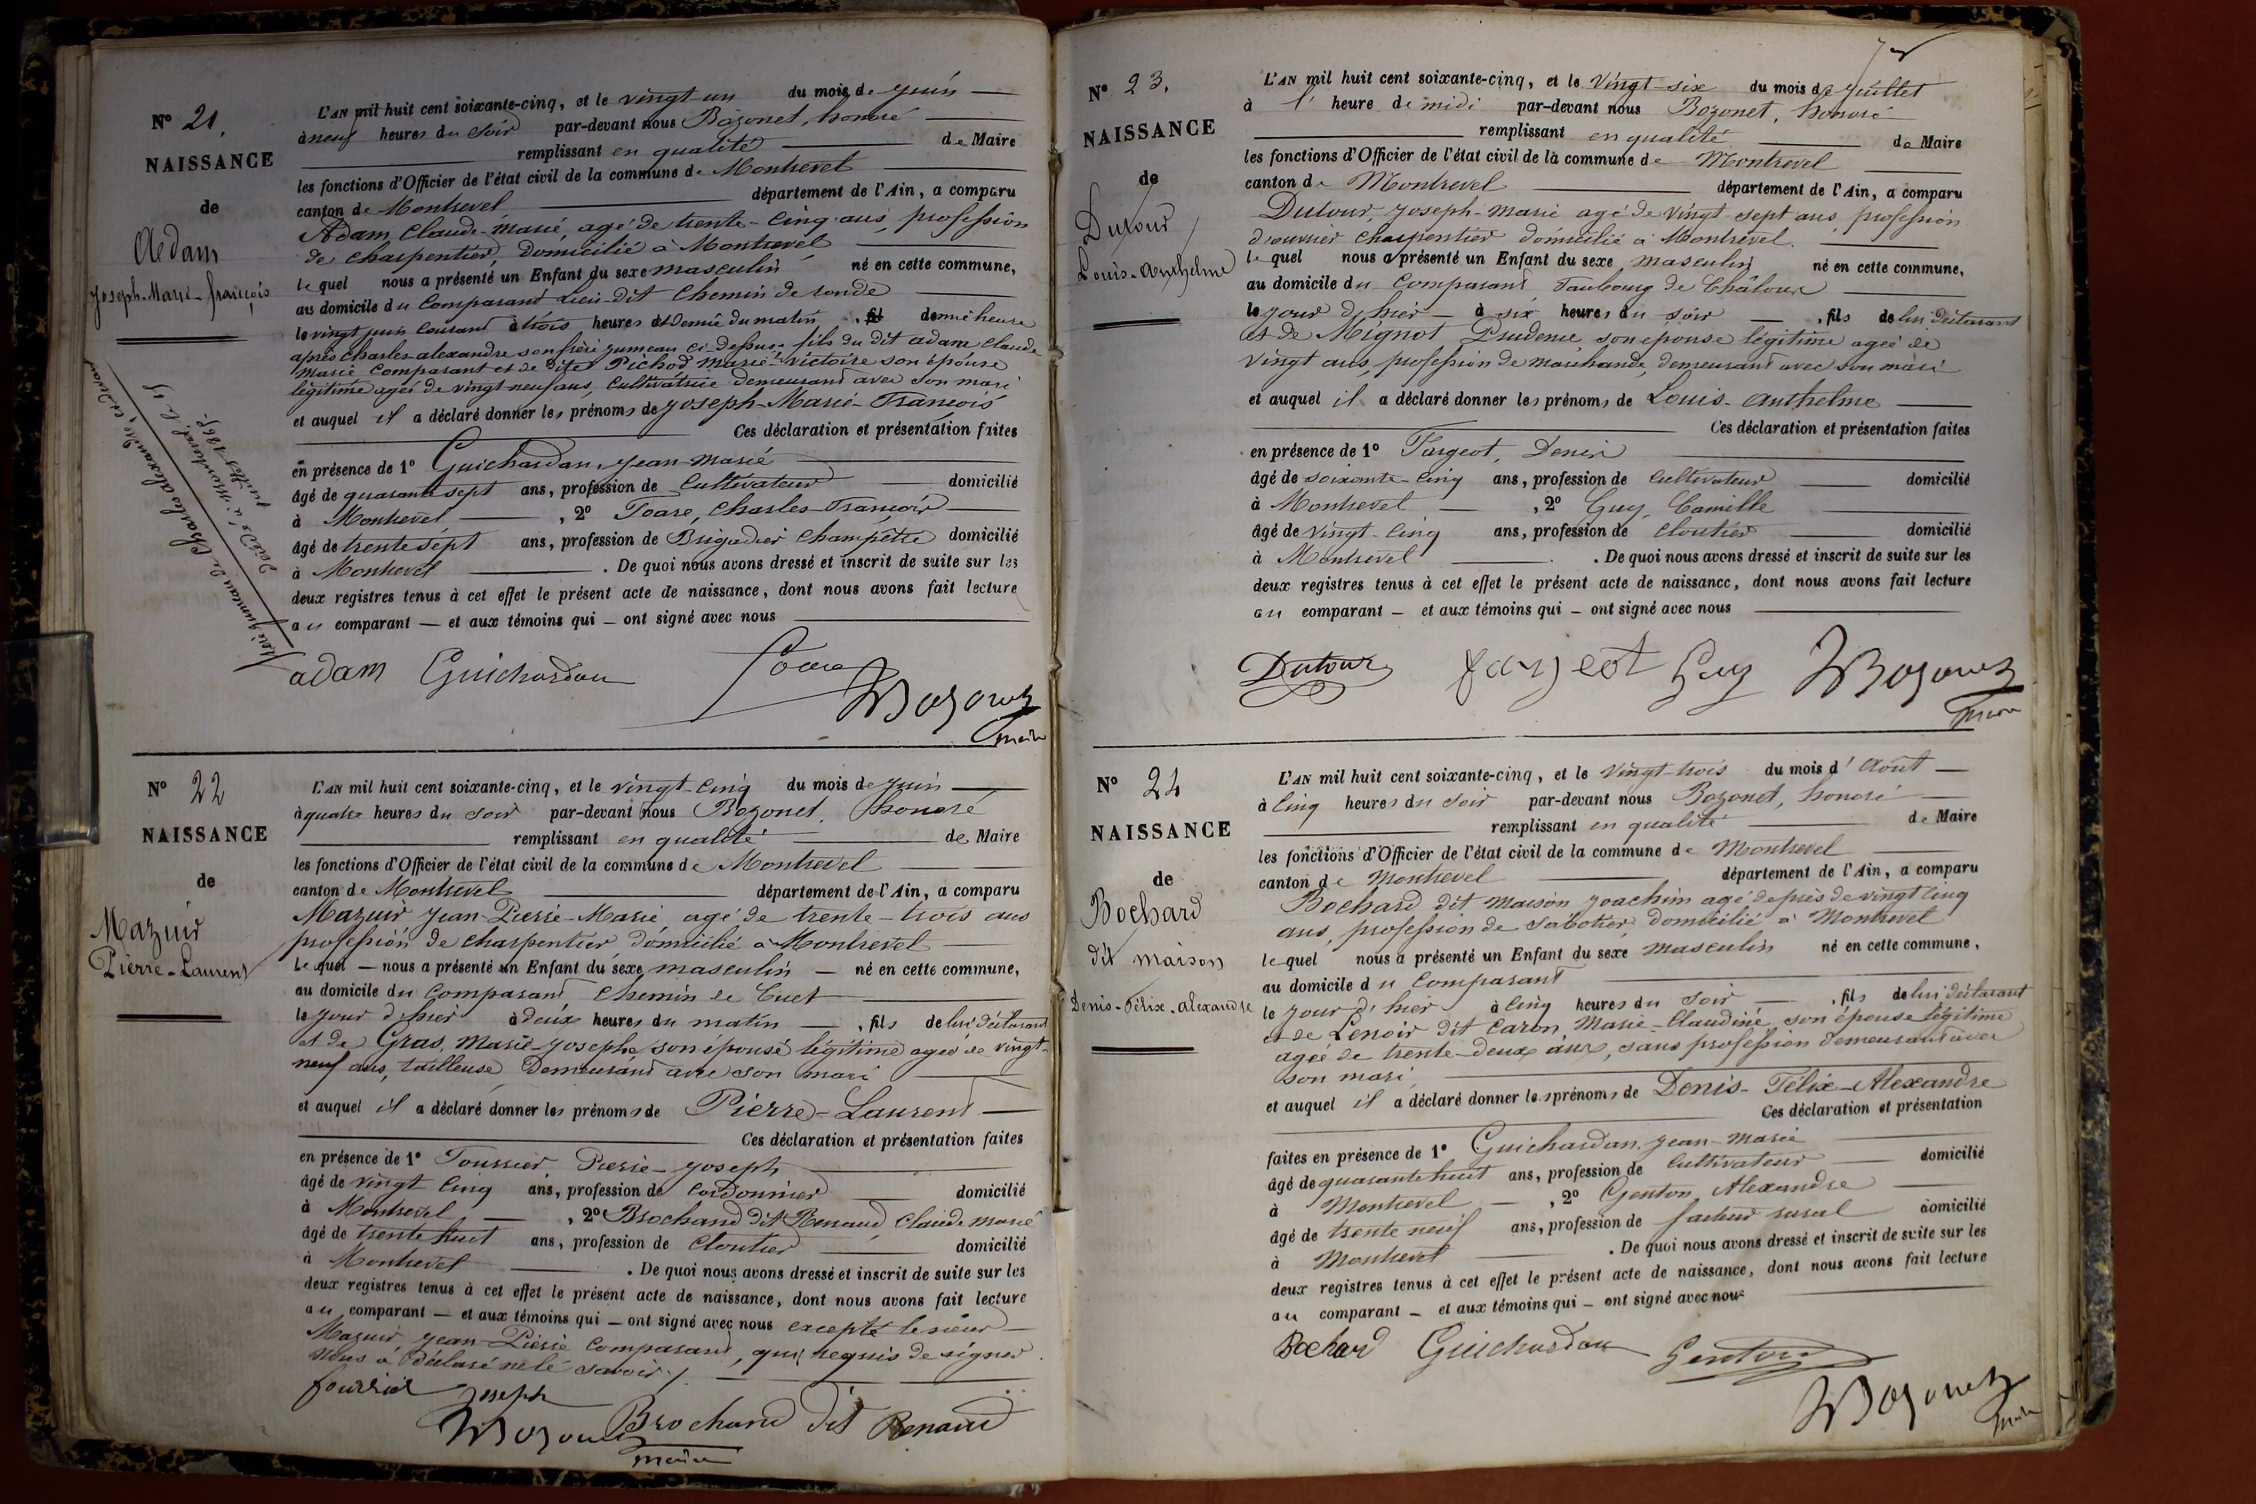 N° 21.
NAISSANCE
de
Adam
Joseph-Marie-françois
frère jumeau de Charles alexandre, ci-devant
Décédé à Montrevel le 15
juillet 1865.
L'AN mil huit cent soixante-cinq, et le vingt-un du mois de juin
à neuf heures du soir par-devant nous Bozonet, honoré
remplissant en qualité de Maire
les fonctions d'Officier de l'état civil de la commune de Montrevel
canton de Montrevel département de l'Ain, a comparu
Adam, Claude-Marie, agé de trente-cinq ans, profession
de charpentier, domicilié à Montrevel
lequel nous a présenté un Enfant du sexe masculin né en cette commune,
au domicile du Comparant Lieu-dit Chemin de ronde
le vingt juin courant à trois heures et Demie du matin, fil demie heure
après Charles-alexandre son frère jumeau ci-dessus. fils du dit adam Claude
Marie Comparant et de Pichod Marie-Victoire son épouse
légitime agée de vingt-neuf ans, Cultivatrice demeurant avec son mari
et auquel il a déclaré donner les prénoms de Joseph-Marie-François
Ces déclaration et présentation faites
en présence de 1° Guichardan, Jean-Marie
âgé de quarante sept ans, profession de Cultivateur domicilié
à Montrevel, 2° Foare, Charles-François
âgé de trente sept ans, profession de Brigadier Champêtre domicilié
à Montrevel. De quoi nous avons dressé et inscrit de suite sur les
deux registres tenus à cet effet le présent acte de naissance, dont nous avons fait lecture
au comparant — et aux témoins qui — ont signé avec nous
adam Guichardan Foare
Bozonet
maire
N° 22
NAISSANCE
de
Mazuir
Pierre-Laurent
L'AN mil huit cent soixante-cinq, et le vingt-cinq du mois de juin
à quatre heures du soir par-devant nous Bozonet, honoré
remplissant en qualité de Maire
les fonctions d'Officier de l'état civil de la commune de Montrevel
canton de Montrevel département de l'Ain, a comparu
Mazuir Jean-Pierre-Marie agé de trente-trois ans
profession de charpentier domicilié à Montrevel
lequel — nous a présenté un Enfant du sexe masculin — né en cette commune,
au domicile du Comparant Chemin de Cuet
le jour d'hier à deux heures du matin —, fils de lui déclarant
et de Gras, Marie-Josephe son épouse légitime agée de vingt-
neuf ans, tailleuse Demeurant avec son mari
et auquel il a déclaré donner les prénoms de Pierre-Laurent
Ces déclaration et présentation faites
en présence de 1° Fourrier Pierre-Joseph
âgé de vingt cinq ans, profession de Cordonnier domicilié
à Montrevel, 2° Brochand dit Renaud, Claude Marie
âgé de trente huit ans, profession de Cloutier domicilié
à Montrevel. De quoi nous avons dressé et inscrit de suite sur les
deux registres tenus à cet effet le présent acte de naissance, dont nous avons fait lecture
au comparant — et aux témoins qui — ont signé avec nous excepté le sieur
Mazuir Jean-Pierre Comparant, qui requis de signer
nous a déclaré ne le savoir.
fourrier Joseph
Bozonet Brochand dit Renaud
maire
N° 23.
NAISSANCE
de
Dutour
Louis-Anthelme
L'AN mil huit cent soixante-cinq, et le Vingt-six du mois de Juillet
à l' heure de midi par-devant nous Bozonet, honoré
remplissant en qualité de Maire
les fonctions d'Officier de l'état civil de la commune de Montrevel
canton de Montrevel département de l'Ain, a comparu
Dutour, Joseph-Marie agé de vingt-sept ans, profession
d'ouvrier Charpentier domicilié à Montrevel.
lequel nous a présenté un Enfant du sexe masculin né en cette commune,
au domicile du Comparant Faubourg de Châloux
le jour d'hier — à six heures du soir —, fils de lui Déclarant
et de Mignot Prudence son épouse légitime agée de
Vingt ans, profession de marchande, demeurant avec son mari
et auquel il a déclaré donner les prénoms de Louis-Anthelme
Ces déclaration et présentation faites
en présence de 1° Fargeot, Denis
âgé de soixante-cinq ans, profession de Cultivateur domicilié
à Montrevel, 2° Guy, Camille
âgé de vingt-cinq ans, profession de Cloutier domicilié
à Montrevel. De quoi nous avons dressé et inscrit de suite sur les
deux registres tenus à cet effet le présent acte de naissance, dont nous avons fait lecture
au comparant — et aux témoins qui — ont signé avec nous
Dutour fargeot Guy Bozonet
maire
N° 24
NAISSANCE
de
Bochard
dit maison
Denis-Félix-Alexandre
L'AN mil huit cent soixante-cinq, et le Vingt-trois du mois d'Août
à cinq heures du soir par-devant nous Bozonet, honoré
remplissant en qualité de Maire
les fonctions d'Officier de l'état civil de la commune de Montrevel
canton de Montrevel département de l'Ain, a comparu
Bochard dit maison Joachim agé de près de vingt cinq
ans, profession de Sabotier, domicilié à Montrevel
lequel nous a présenté un Enfant du sexe masculin né en cette commune,
au domicile du Comparant
le jour d'hier à cinq heures du soir —, fils de lui déclarant
et de Lenoir dit Caron, Marie-Claudine, son épouse légitime
agée de trente-deux ans, sans profession demeurant avec
son mari,
et auquel il a déclaré donner les prénoms de Denis-Félix-Alexandre
Ces déclaration et présentation
faites en présence de 1° Guichardan, Jean-Marie
âgé de quarante huit ans, profession de Cultivateur domicilié
à Montrevel, 2° Genton, Alexandre
âgé de trente neuf ans, profession de facteur rural domicilié
à Montrevel. De quoi nous avons dressé et inscrit de suite sur les
deux registres tenus à cet effet le présent acte de naissance, dont nous avons fait lecture
au comparant — et aux témoins qui — ont signé avec nous
Bochard Guichardan Genton
Bozonet
maire